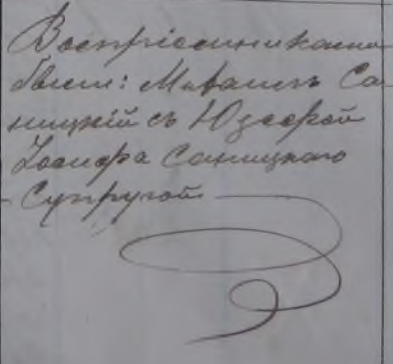 Воспріемниками
были: Михаилъ Са
ницкій съ Юзефой
Іосифа Саницкаго
Супругой